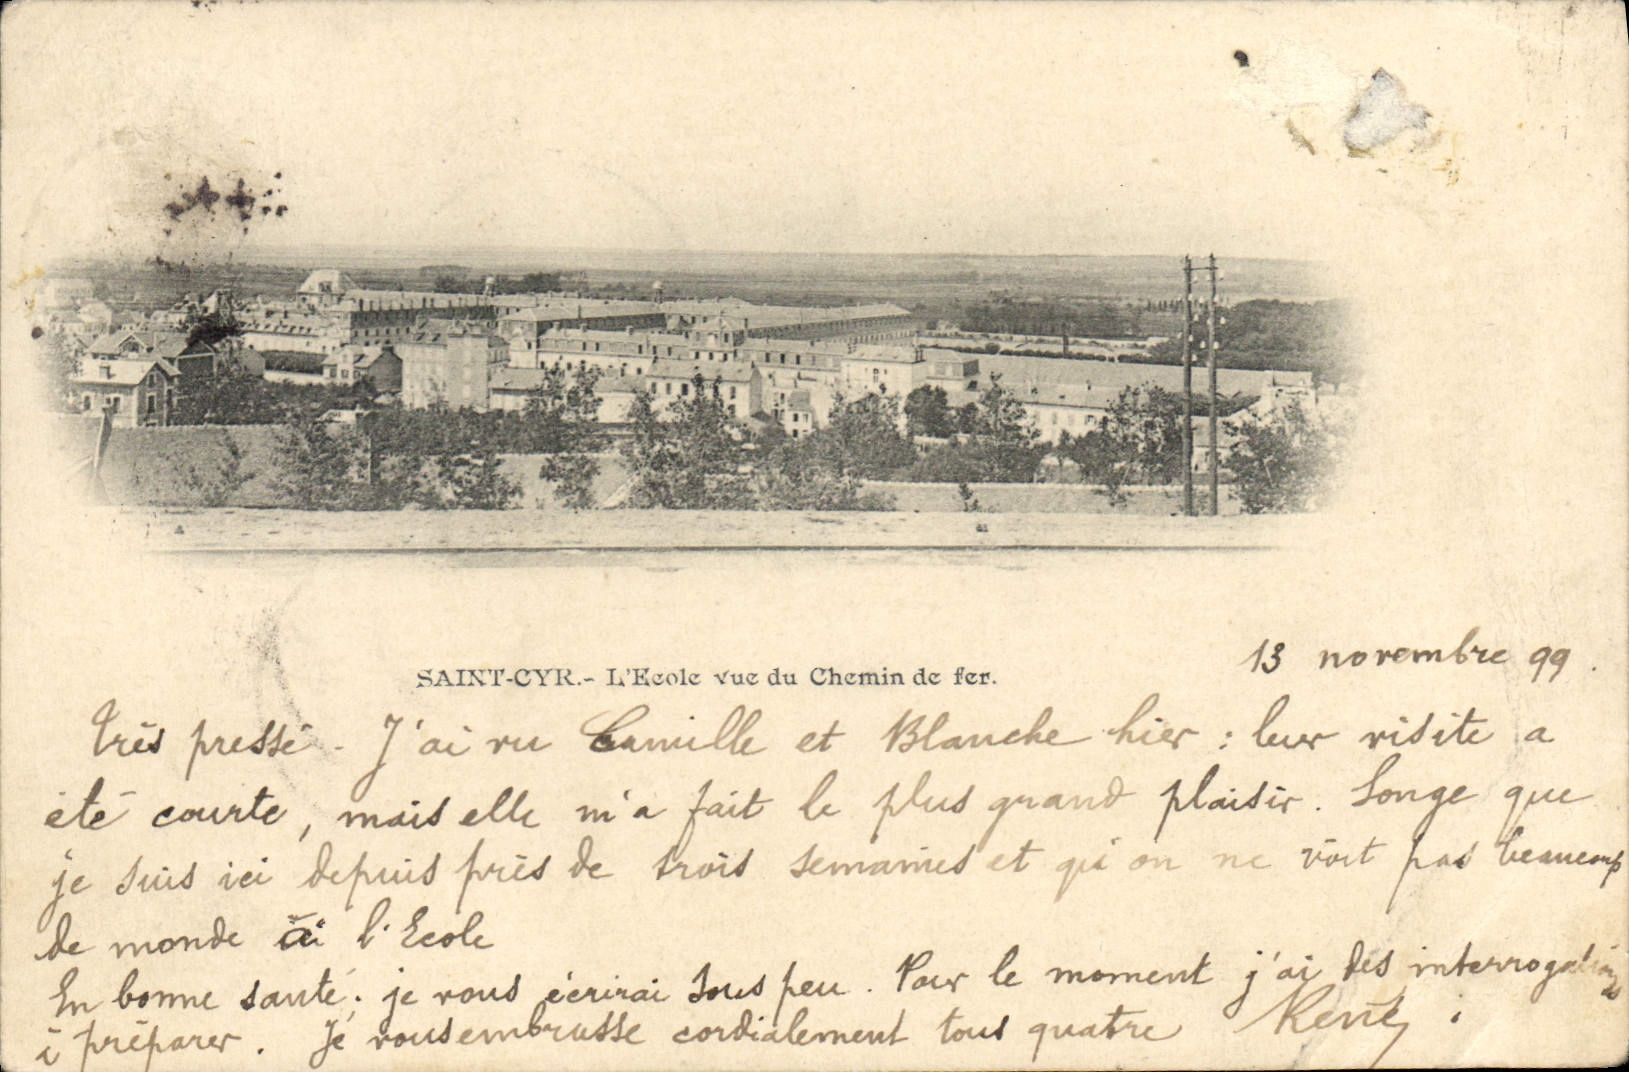 13 novembre 99.
SAINT-CYR.- L'Ecole vue du Chemin de fer.
Très pressé - J'ai vu Camille et Blanche hier : leur visite a
été courte, mais elle m'a fait le plus grand plaisir. Songe que
je suis ici depuis près de trois semaines et qu'on ne voit pas beaucoup
de monde à l'Ecole
En bonne santé ; je vous écrirai sous peu. Pour le moment j'ai des interrogations
à préparer. Je vous embrasse cordialement tous quatre René.